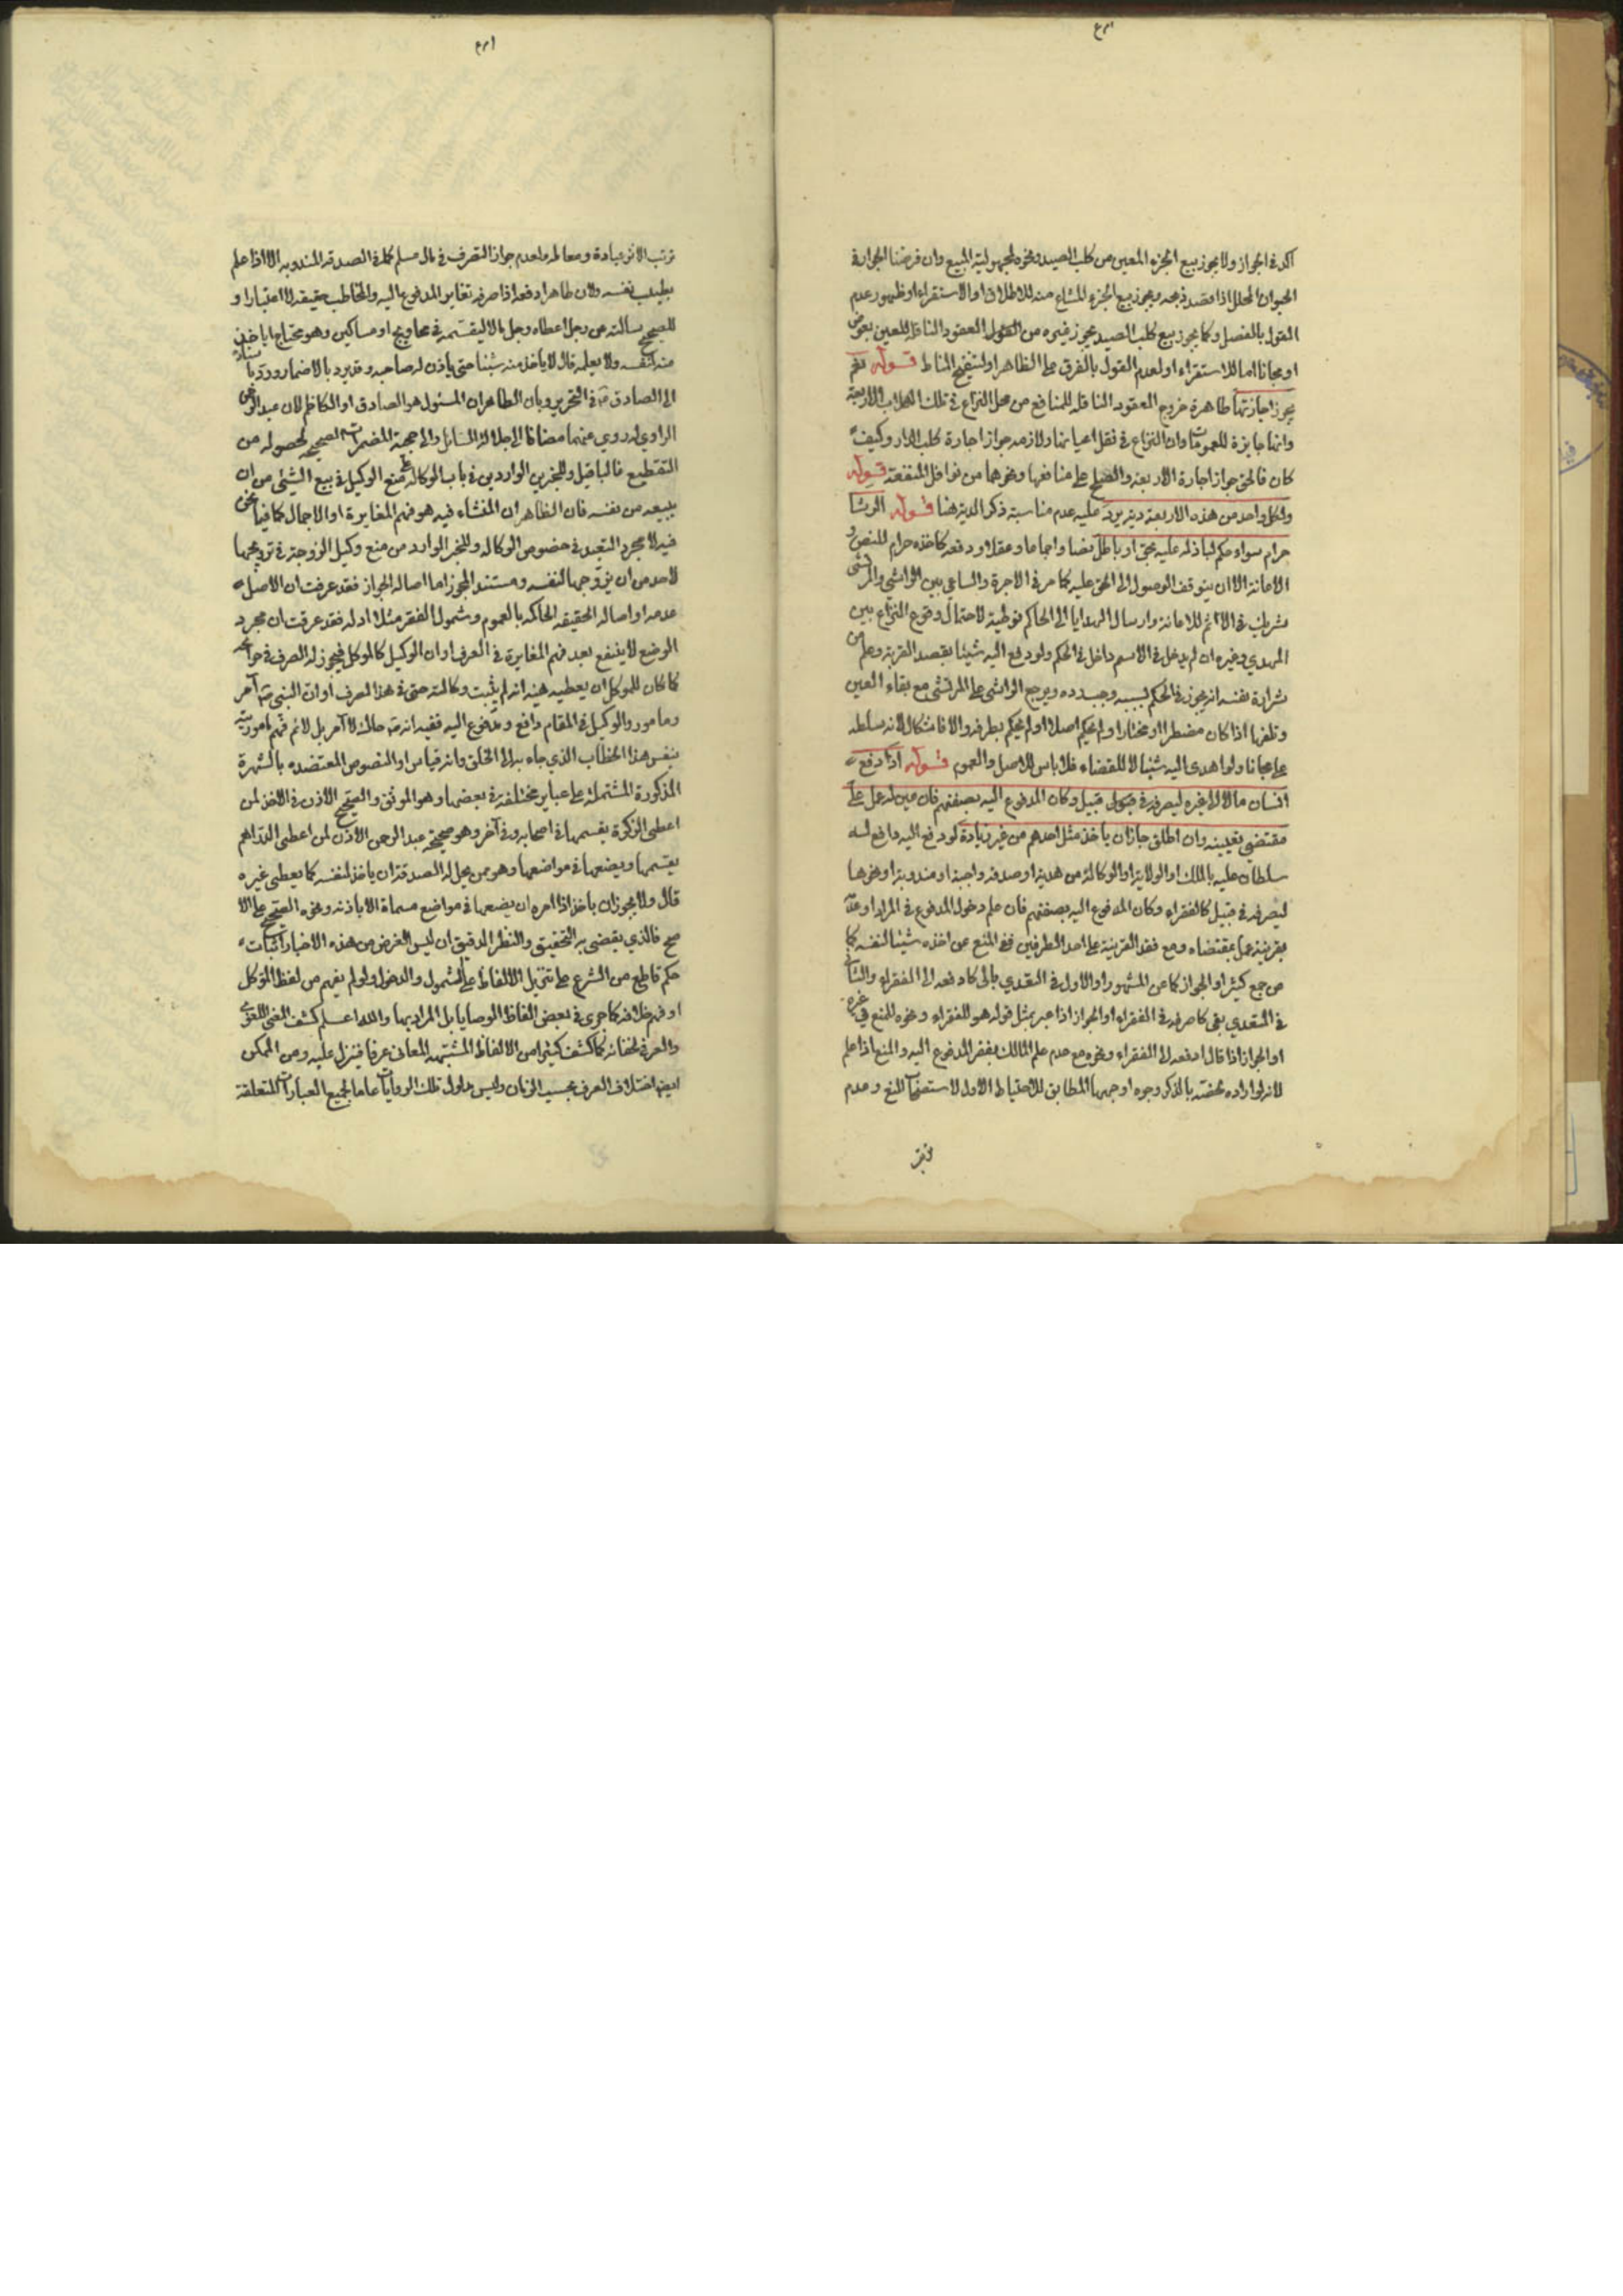 اكد فى الجواز ولا يجوز بيع الجزء المعين من كلب الصيد ونحوه لجهولية المبيع وان فرضنا الجواز فى
الحيوان المحلل اذا قصد ذبحه ويجوز بيع الجزء المشاع منه للاطلاق او الاستقراء او ظهور عدم
القول بالفصل وكما يجوز بيع كلب الصيد يجوز غيره من العقود الناقلة للعين بعوض
او مجانا اما للاستقراء او لعدم القول بالفرق على الظاهر او لتنقيح المناط قوله نعم
يجوز اجارتها ظاهره خروج العقود الناقلة للمنافع من محل النزاع فى تلك الكلاب الاربعة
وانها جايزة للعمومات وان النزاع فى نقل اعيانها ولازمه جواز اجارة كلب الدار وكيف
كان فالحق جواز اجارة الاربعة والصلح على منافعها ونحوهما من نواقل المنفعة قوله
ولكل واحد من هذه الاربعة دية يرد عليه عدم مناسبة ذكر الدية هنا قوله الرشا
حرام سواء حكم لباذله عليه بحق او باطل نصا واجماعا وعقلا ودفعه كاخذه حرام للنص و
الاعانة الا ان يتوقف الوصول الى الحق عليه كما مر فى الاجرة والساعى بين الراشى والمرتشى
شريك فى الاثم للاعانة وارسال الهدايا الى الحاكم توطية لاحتمال وقوع النزاع بين
المهدى وغيره ان لم يدخل فى الاسم داخل فى الحكم ولو دفع اليه شيئا بقصد القربة وعلم من
شرارة نفسه انه يجوز فى الحكم بسببه وجب رده ويرجع الراشى على المرتشى مع بقاء العين
وتلفها اذا كان مضطرا او مختارا ولم يحكم اصلا او لم يحكم بطرفه والا فاشكال لانه سلطه
على مجانا ولو اهدى اليه شيئا لا للقضاء فلا باس للاصل والعموم قوله اذا دفع
انسان مالا الى غيره ليصرفه فى قبيل وكان المدفوع اليه بصفتهم فان عين له عمل على
مقتضى تعيينه وان اطلق جاز ان ياخذ مثل احدهم من غير زيادة لو دفع اليه دافع له
سلطان عليه بالملك او الولاية او الوكالة من هدية او صدقة واجبة او مندوبة او نحوها
ليصرفه فى قبيل كالفقراء وكان المدفوع اليه بصفتهم فان علم دخول المدفوع فى المراد او عدمه
بقرينة عمل بمقتضاه ومع فقد القرينة على احد الطرفين ففى المنع عن اخذه شيئا لنفسه كما
عن جمع كثير او الجواز كما عن المشهور او الاول فى التعدى بالى كادفعه الى الفقراء والثانى
فى المتعدى بفى كاصرفه فى الفقراء او الجواز اذا عبر بمثل قوله هو للفقراء ونحوه للمنع فى غيره
او الجواز اذا قال ادفعه الى الفقراء ونحوه مع عدم علم المالك بفقر المدفوع اليه والمنع اذا علم
لانه لو اراده لخصه بالذكر وجوه اوجهها المطابق للاحتياط الاول لاستصحاب المنع وعدم
ترتب الاثر عبادة ومعاملة ولعدم جواز التصرف فى مال مسلم كما فى الصدقة المندوبة الا اذا علم
بطيب نفسه ولان ظاهر ادفعه اذا صرفه تغاير المدفوع اليه والمخاطب حقيقة لا اعتبارا و
للصحيح سالته عن رجل اعطاه رجل مالا ليقسمه فى محاويج او مساكين وهو محتاج اياخذ
منه لنفسه ولا يعلمه قال لا ياخذ منه شيئا حتى ياذن له صاحبه وقد يرد بالاضمار ورد
الى الصادق فى التحرير وبان الظاهر ان المسئول هو الصادق او الكاظم لان عبد الرحمن
الراوى له روى عنهما مضافا الى جلالة السائل والى حجية المضمرات الصحيحة لحصوله من
التقطيع فالباقيل وللخبرين الواردين فى باب الوكالة على منع الوكيل فى بيع الشيئ من ان
يبيعه من نفسه فان الظاهر ان المنشاء فيه هو فهم المغايرة او الاجمال كما فيما نحن
فيه لا مجرد التعبد فى خصوص الوكالة وللخبر الوارد من منع وكيل الزوجة فى تزويجها
لاحد من ان يزوجها لنفسه ومستند المجوز اما اصالة الجواز فقد عرفت ان الاصل
عدمه او اصالة الحقيقة الحاكمة بالعموم وشمول الفقر مثلا له فقد عرفت ان مجرد
الوضع لا ينفع بعد فهم المغايرة فى العرف او ان الوكيل كالموكل فيجوز له الصرف فى حوائجه
كما كان للموكل ان يعطيه ففيه انه لم يثبت وكالته حتى فى هذا الصرف او ان النبى آمر
ومامور والوكيل فى المقام دافع ومدفوع اليه ففيه انه حاك لا آمر بل لا ثم فهم ماموريته
بنفس هذا الخطاب الذى جاء به الى الخلق وانه قياس او النصوص المعتضدة بالشهرة
المذكورة المشتملة على عباير مختلفة فى بعضها وهو الموثق والصحيح الاذن فى الاخذ لمن
اعطى الزكوة يقسمها فى اصحابه وفى آخر وهو صحيحة عبد الرحمن الاذن لمن اعطى الدراهم
يقسمها ويضعها فى مواضعها وهو ممن يحل له الصدقة ان ياخذ لنفسه كما يعطى غيره
قال ولا يجوز ان ياخذ اذا امره ان يضعها فى مواضع مسماة الا باذنه ونحوه الصحيح على الا
صح فالذى يقضى به التحقيق والنظر الدقيق ان ليس الغرض من هذه الاخبار اثبات
حكم قاطع من الشرع على تنزيل الالفاظ على الشمول والدخول ولو لم يفهم من لفظ الموكل
او فهم خلافه كما جرى فى بعض الفاظ الوصايا بل المراد بها والله اعلم كشف المعنى اللغوى
والعرفى لخفائه كما كشف كثيرا من الالفاظ المشتبهة المعانى عرفا فينزل عليه ومن الممكن
ايضا اختلاف العرف بحسب الزمان وليس مدلول تلك الروايات عاما لجميع العبارات المتعلقة